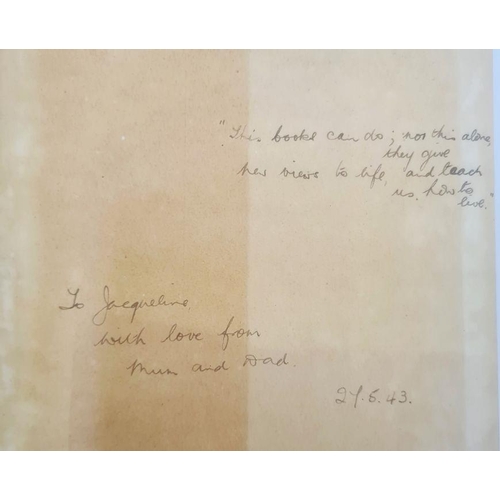 "This books can do; nor this alone,
they give
new views to life, and teach
us, how to
live."
To Jacqueline
with love from
Mum and Dad.
27.5.43.